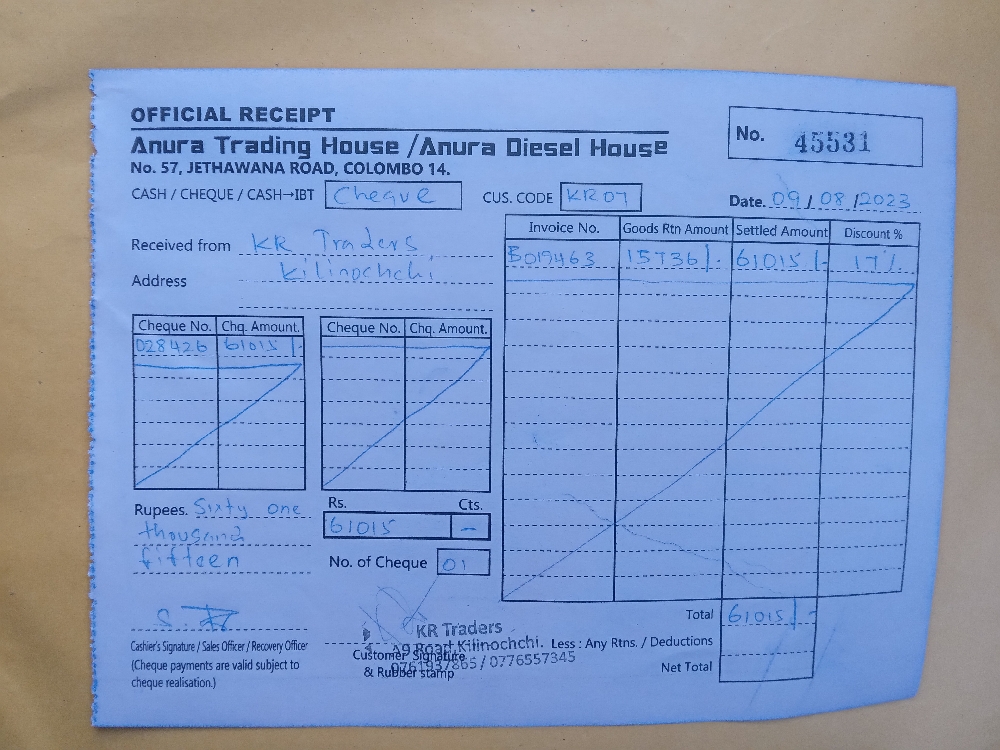 OFFICIAL RECEIPT
Anura Trading House /Anura Diesel House
No. 57, JETHAWANA ROAD, COLOMBO 14.
No. 45531
CASH / CHEQUE / CASH→IBT Cheque CUS. CODE KR07
Date. 09 / 08 /2023
Received from KR Traders
Address Kilinochchi
Invoice No. Goods Rtn Amount Settled Amount Discount %
B019463 15736/- 61015/- 17%
Cheque No. Chq. Amount. Cheque No. Chq. Amount.
028426 61015/-
Rupees. Sixty one
thousand
fifteen
Rs. Cts.
61015 -
No. of Cheque 01
Total 61015/-
Less : Any Rtns. / Deductions
Net Total
Cashier's Signature / Sales Officer / Recovery Officer
(Cheque payments are valid subject to
cheque realisation.)
KR Traders
A9 Road, Kilinochchi.
/ 0776557345
Customer Signature
& Rubber stamp